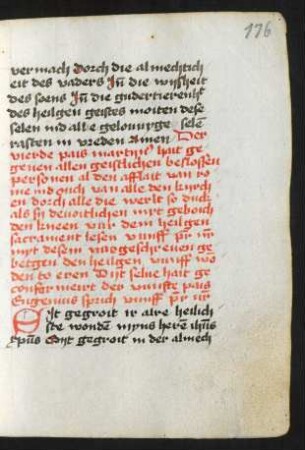 176
vermach dorch die almechtich
eit des vaders In die wyſheit
des soens In die gudertierenh
des heilgen geistes moiten dese
selen ind alle geloiuvge selen
rasten in vreden Amen Der
vierde pais martinus hait ge
geuen allen geistlichen besloſſen
personen al den afflait van ro
me ind ouch van alle den kirch
en dorch alle die werlt so duck
als sy devoitlichen myt geboich
den kneen vur dem heilgen
sacrament lesen vunff pr nr
myt desem na geschreuen ge
betgen den heilgen vunff wo
den to eren Dyt selue hait ge
confirmeirt der vunfte pais
Eugenius sprich vunff pr nr
Syt gegroit ir alre heilich
ste wonden myns heren ihus
xpus Syt gegroit in der almech